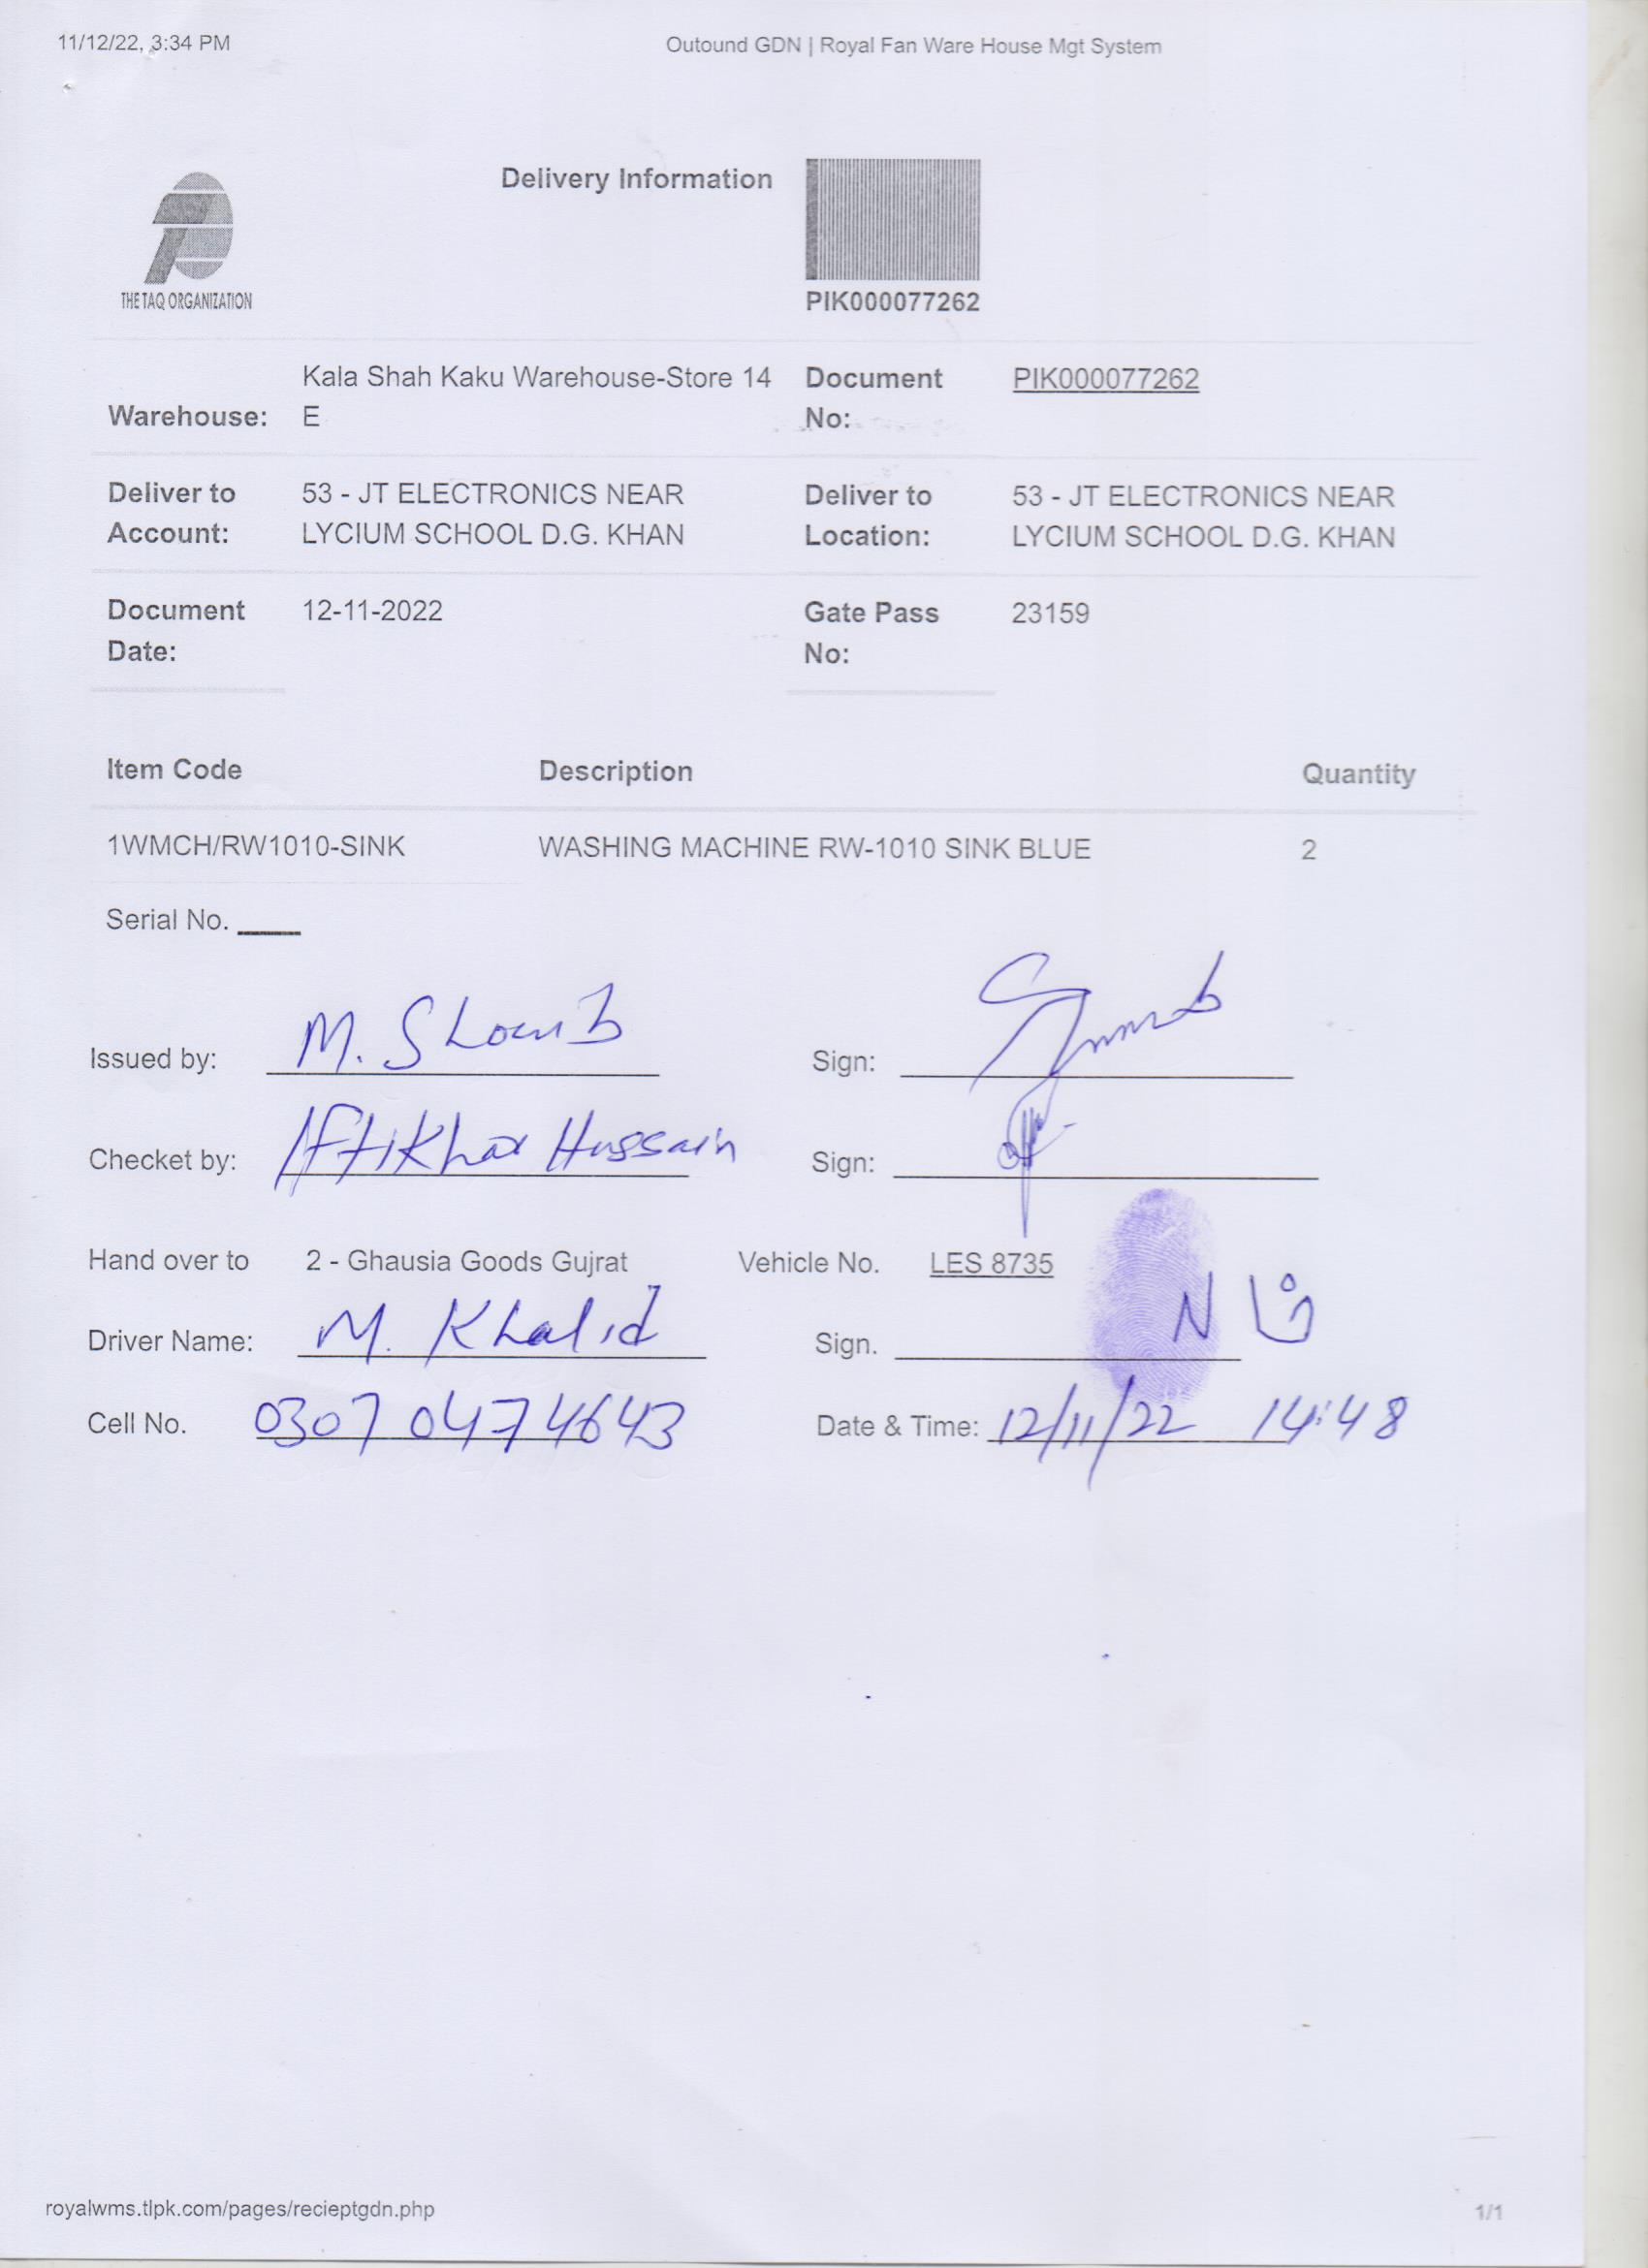 11/12/22, 3:34 PM
Outound GDN | Royal Fan Ware House Mgt System
Delivery Information
THE TAQ ORGANIZATION
PIK000077262
Warehouse: Kala Shah Kaku Warehouse-Store 14 E
Document No: PIK000077262
Deliver to Account: 53 - JT ELECTRONICS NEAR LYCIUM SCHOOL D.G. KHAN
Deliver to Location: 53 - JT ELECTRONICS NEAR LYCIUM SCHOOL D.G. KHAN
Document Date: 12-11-2022
Gate Pass No: 23159
Item Code Description Quantity
1WMCH/RW1010-SINK WASHING MACHINE RW-1010 SINK BLUE 2
Serial No.
Issued by: M. Sign:
Checket by: Iftikhar Hussain Sign:
Hand over to 2 - Ghausia Goods Gujrat Vehicle No. LES 8735
Driver Name: M. Khalid Sign.
Cell No. 0307 0474643 Date & Time: 12/11/22 14:48
royalwms.tlpk.com/pages/recieptgdn.php
1/1